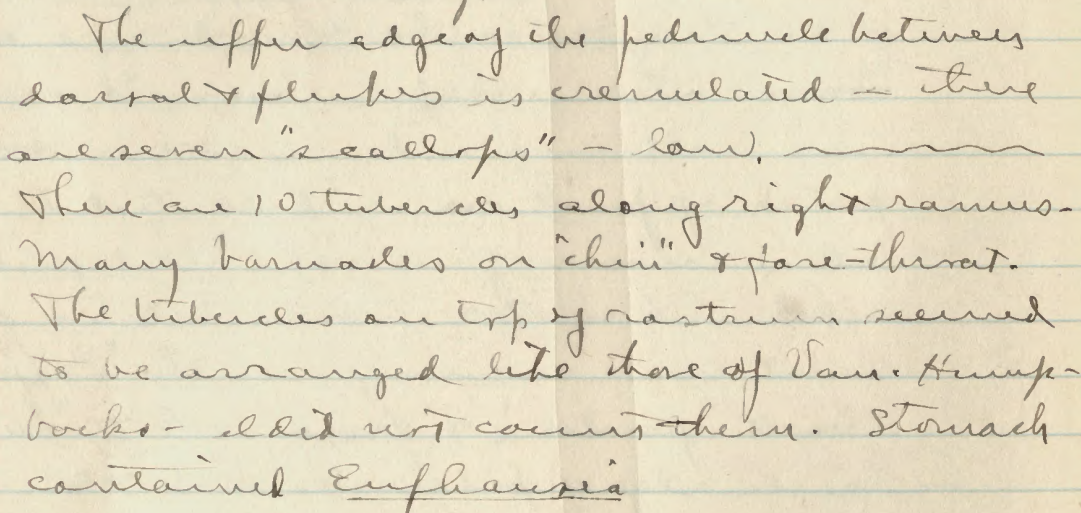 The upper edge of the peduncle between
dorsal & flukes is crenulated – there
are seven "scallops" – low.
There are 10 tubercles along right ramus.
Many barnacles on "chin" & fore-throat.
The tubercles on top of rostrum seemed
to be arranged like those of Van. Hump-
backs - I did not count them. Stomach
contained Euphausia